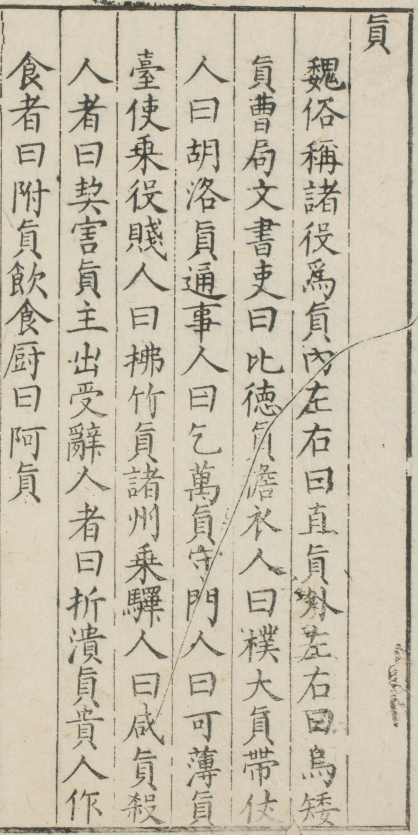 貟
魏俗稱諸役爲貟內左右曰直貟外左右曰烏矮
貟曹局文書吏曰比徳貟澹衣人曰襆大貟帶仗
人曰胡洛貟通事人曰乞萬貟守門人曰可薄貟
臺使乗役賤人曰拂竹貟諸州乗驛人曰咸貟殺
人者曰契害貟主出受辭人者曰折潰貟貴人作
食者曰附貟飲食厨曰阿貟